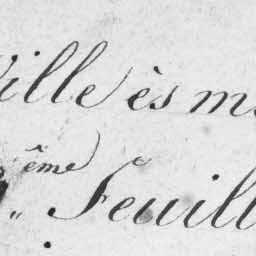 Ville ès m
ème Feuill